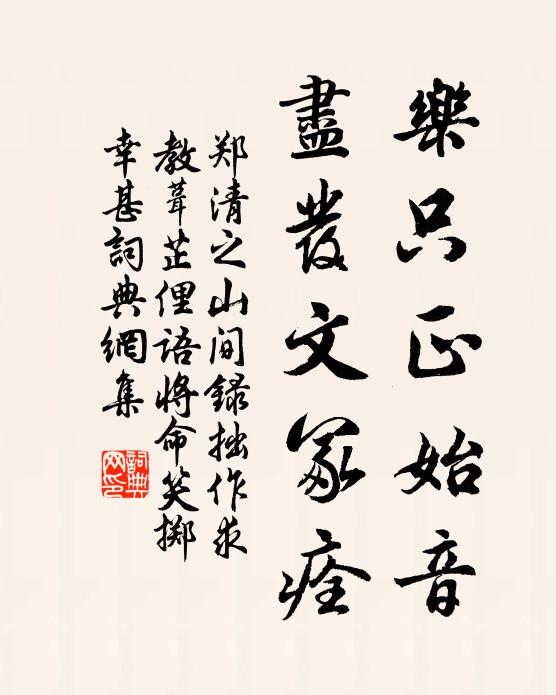 樂只正始音
盡發文冢瘗
郑清之山间録拙作求
教葺芷俚语将命笑掷
幸甚詞典網集
詞典网印